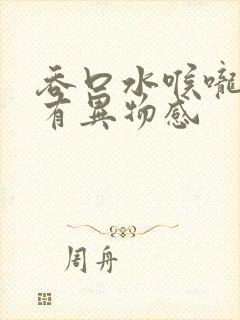 吞口水喉嚨
有異物感
周舟